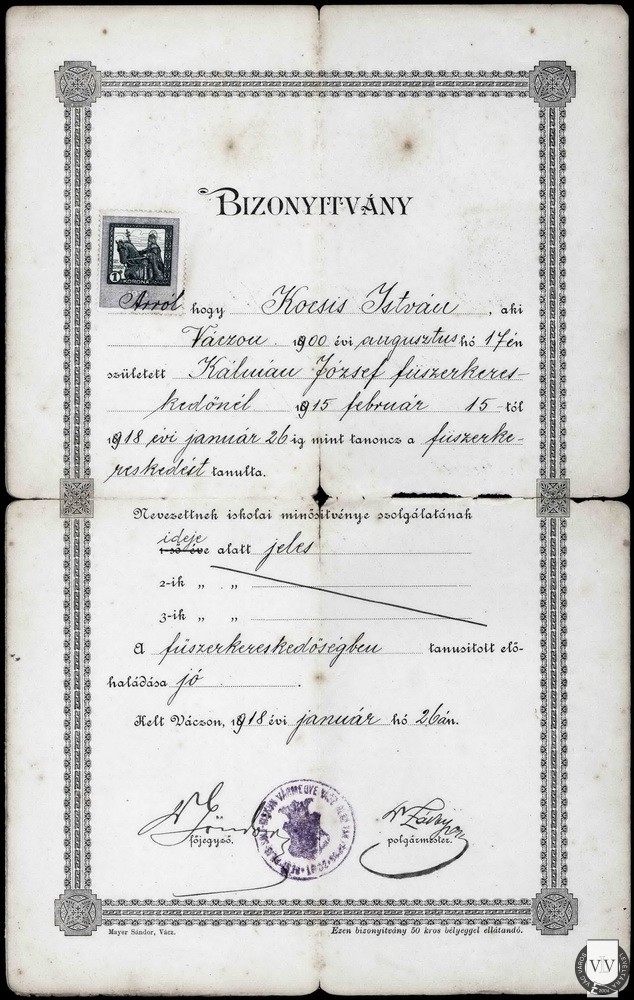 BIZONYITVÁNY
1 KORONA
Arról hogy Kocsis István, aki
Váczon 1900 évi augusztus hó 17én
született Kálmán József füszerkeres-
kedőnél 1915 február 15-től
1918 évi január 26ig mint tanoncz a füszerke-
reskedést tanulta.
Nevezettnek iskolai minősitvénye szolgálatának
ideje
1-ső éve alatt jeles
2-ik „ „
3-ik „ „
A füszerkereskedőségben tanusitott elő-
haladása jó.
Kelt Váczon, 1918 évi január hó 26án.
főjegyző. polgármester.
Mayer Sándor, Vácz. Ezen bizonyitvány 50 kros bélyeggel ellátandó.
VÁC VÁROS LEVÉLTÁRA
VVL